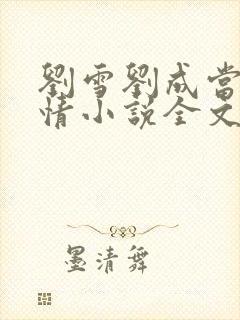 劉雪劉成當
情小説全文
墨清舞